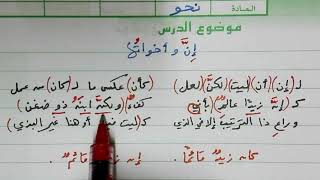 المادة نحو
موضوع الدرس
إنَّ وأخواتُها
لـ (إنَّ) (أنَّ) (ليتَ) (لكنَّ) (لعل) (كأن) عكس ما لـ (كان) من عمل
كـ (إنَّ زيدًا عالمٌ) (بأني) كفءٌ (ولكنَّ ابنَهُ ذو ضغن)
وراعِ ذا الترتيبَ إلا في الذي كـ (ليت فيها أو هنا غير البذي)
كانَ زيدٌ قائمًا. إنَّ زيدًا قائمٌ.